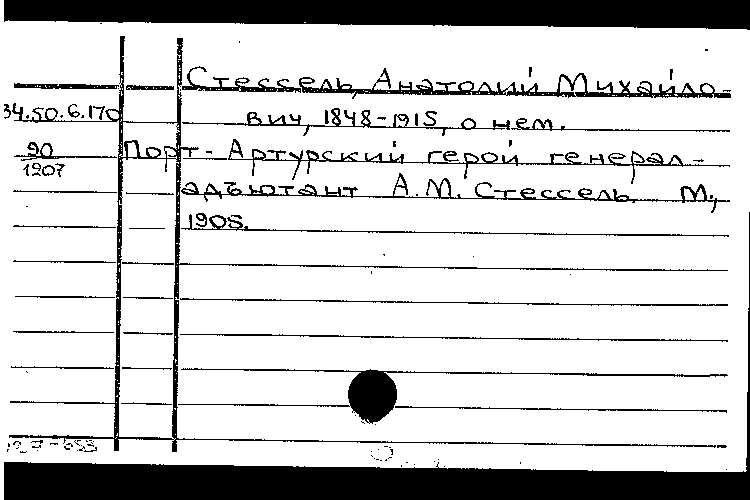 Стессель, Анатолий Михайло-
34.50.6.170 вич, 1848-1915, о нем.
90 Порт-Артурский герой генерал-
1907
адъютант А.М. Стессель. М.,
1905.